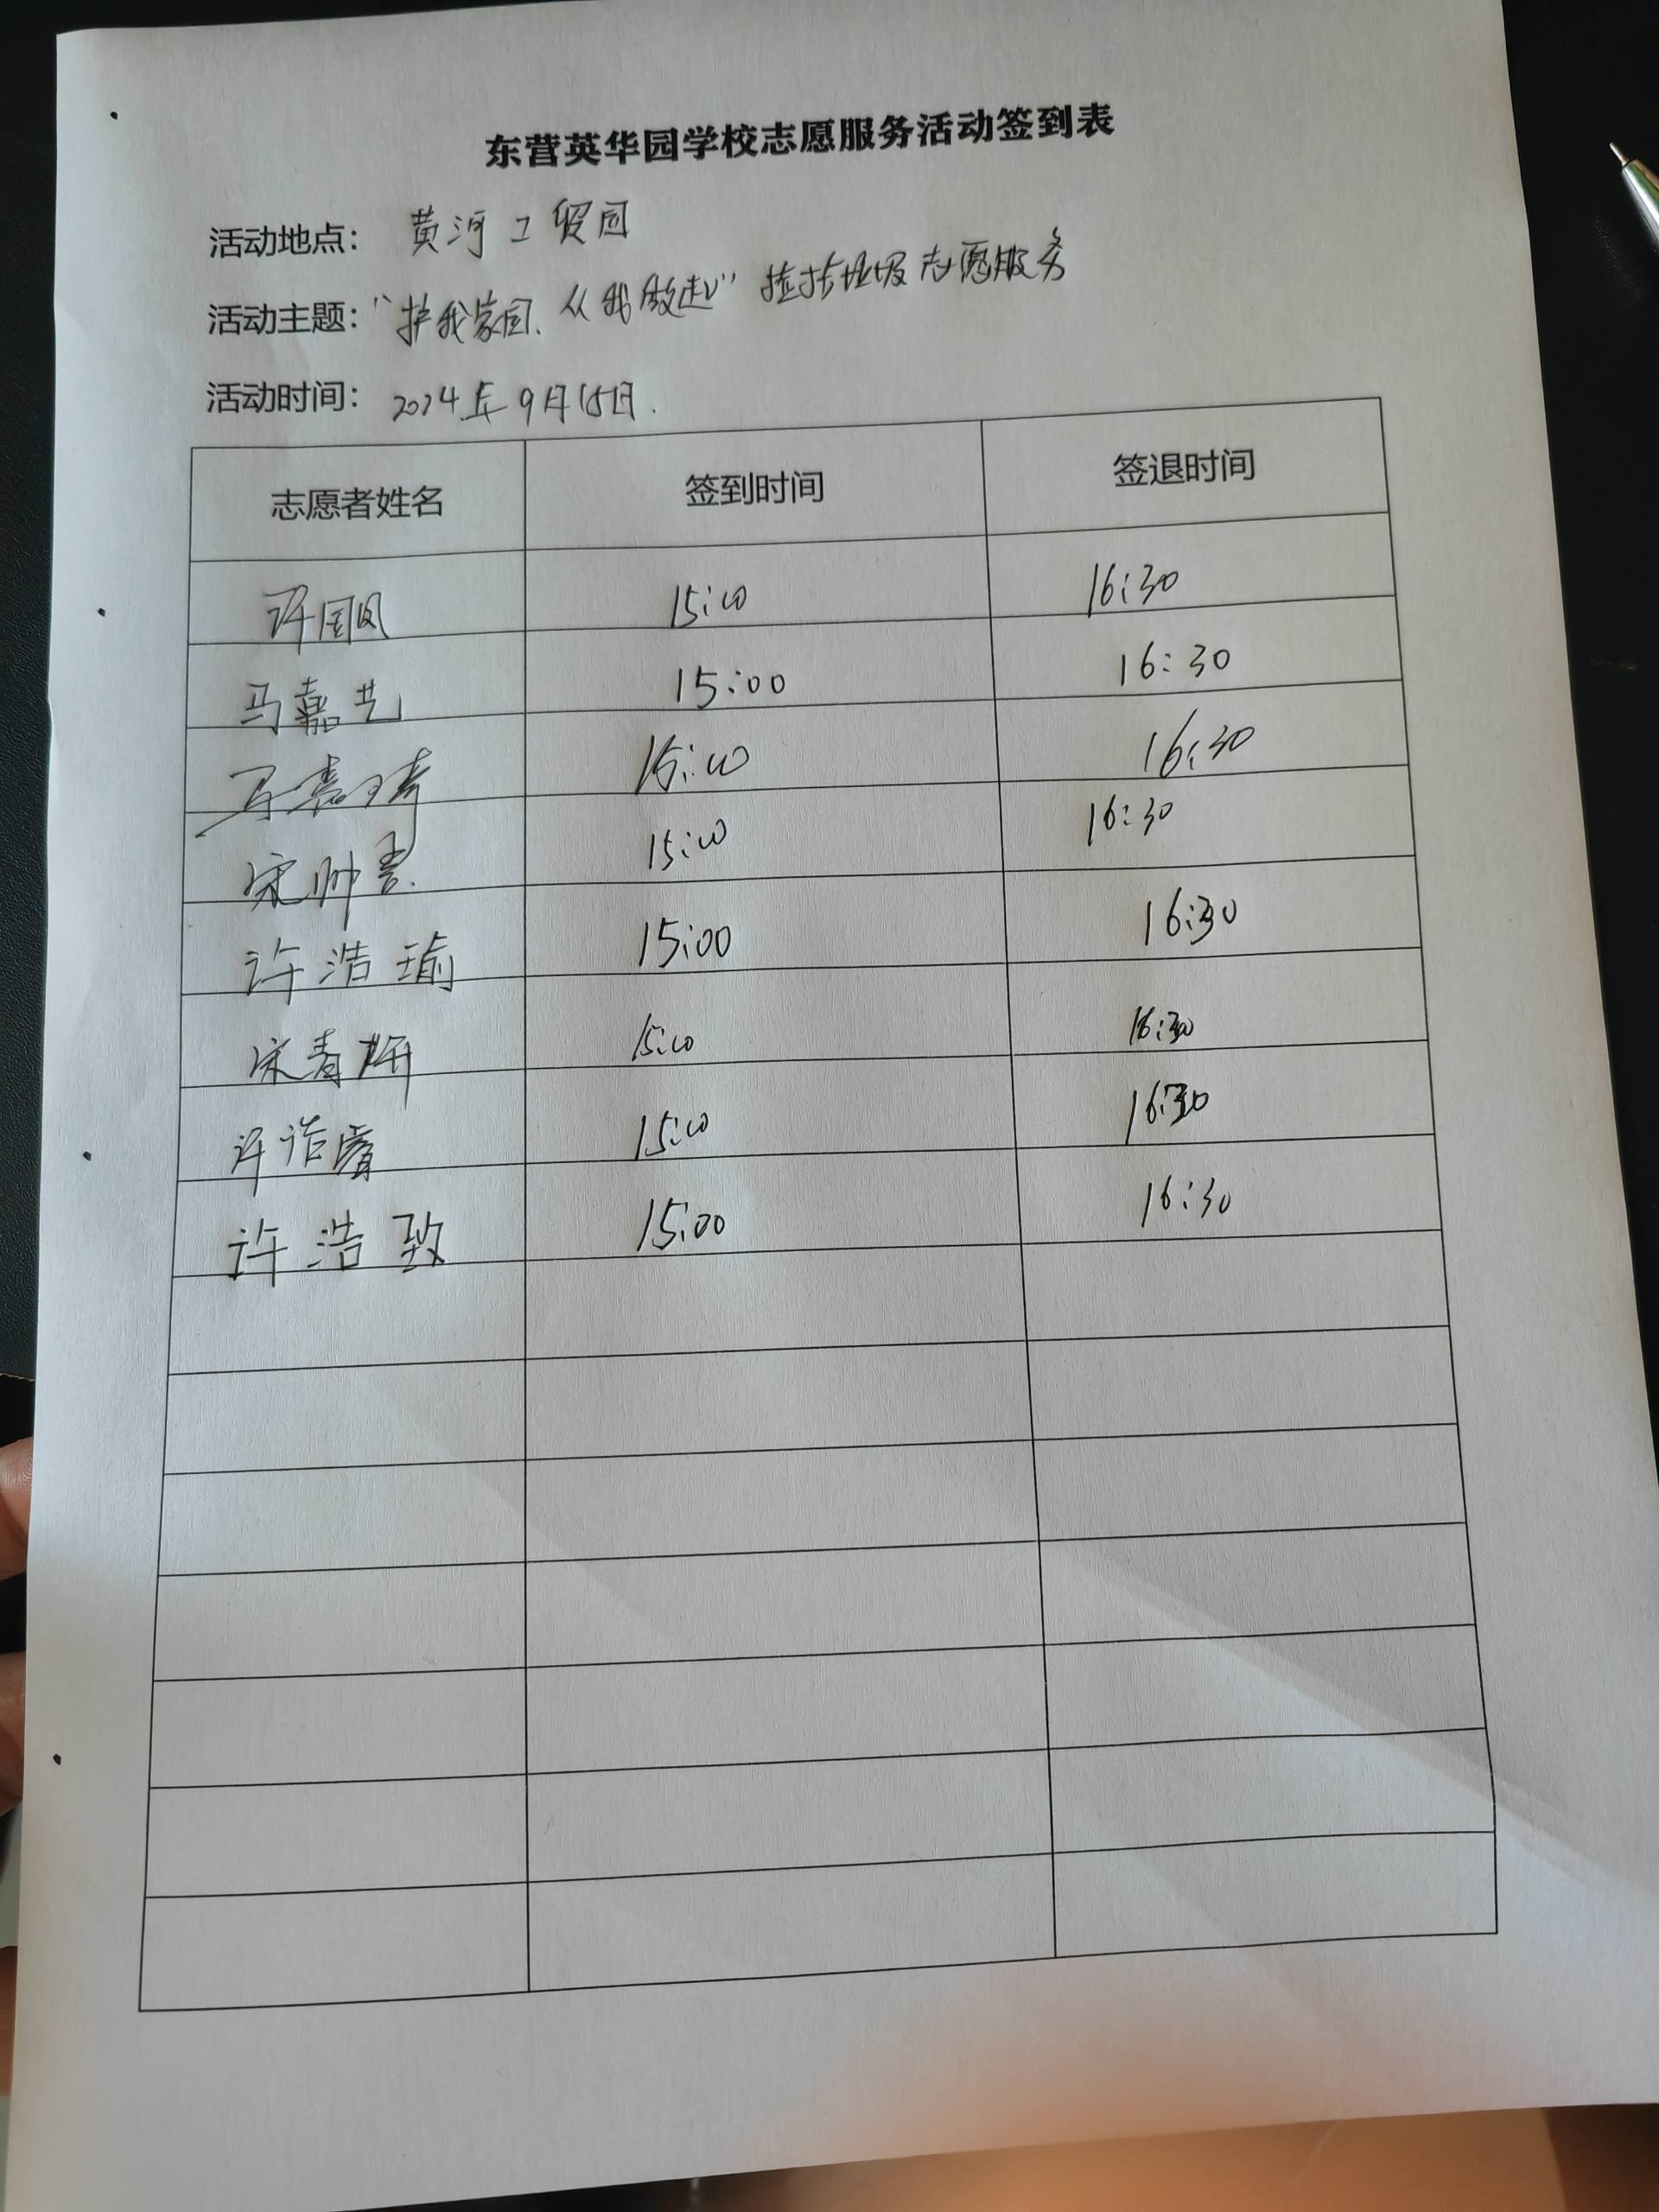 东营英华园学校志愿服务活动签到表
活动地点： 黄河工贸园
活动主题：“护我家园、从我做起”捡拾垃圾志愿服务
活动时间： 2024年9月15日.
志愿者姓名 签到时间 签退时间
许国凤 15:00 16:30
马嘉艺 15:00 16:30
马嘉琦 15:00 16:30
宋帅 15:00 16:30
许浩瑜 15:00 16:30
宋青妍 15:00 16:30
许浩睿 15:00 16:30
许浩致 15:00 16:30